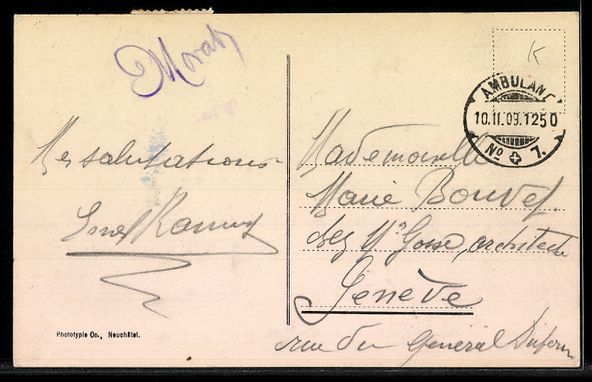 Morat
K
AMBULANT
10.II.09.1250
No 7.
Mes salutations
Mademoiselle
Marie Bouvet.
chez Mr Gosse, architecte
Genève
rue du Général Dufour
Phototypie Co., Neuchâtel.